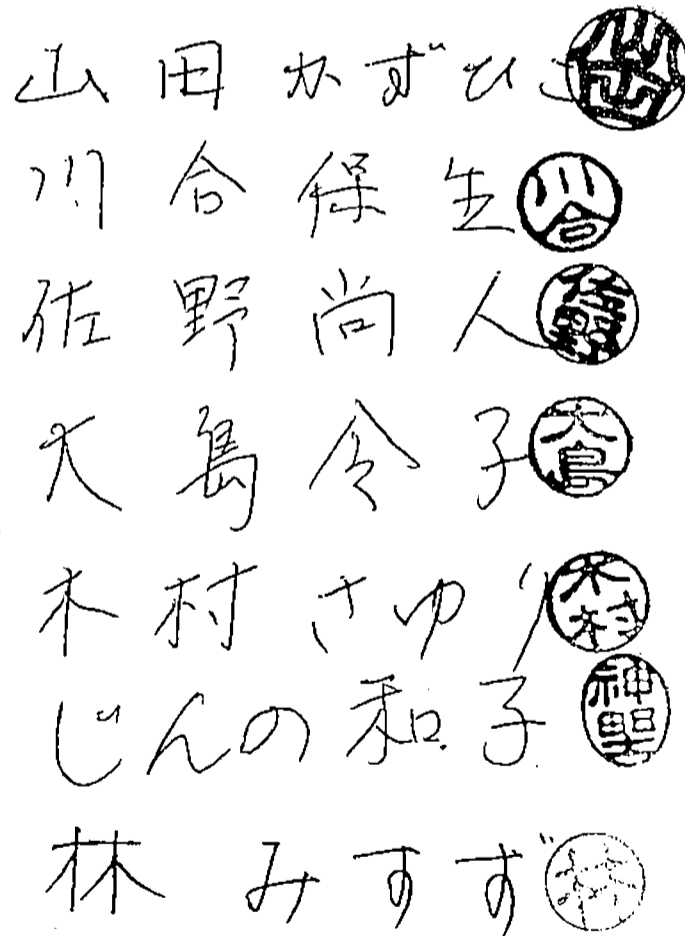 山田かずひこ
川合保生 川合
佐野尚人 佐野
大島令子 大島
木村さゆり 木村
じんの和子 神野
林みすず 林